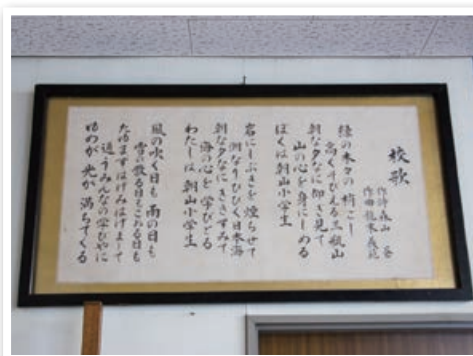 校歌
作詩 森山 
作曲 龍木 
緑の木々の梢こし
高くそびえる三瓶山
朝な夕なに仰ぎ見て
山の心を身にしめる
ぼくは朝山小学生
岩にしぶきを煙らせて
潮なりひびく日本海
朝な夕なにききすみて
海の心を学びとる
わたしは朝山小学生
風の吹く日も雨の日も
雪の散る日もこねる日も
たゆまずはげみはげまして
通うみんなの学びやに
ゆめが光が満ちてくる